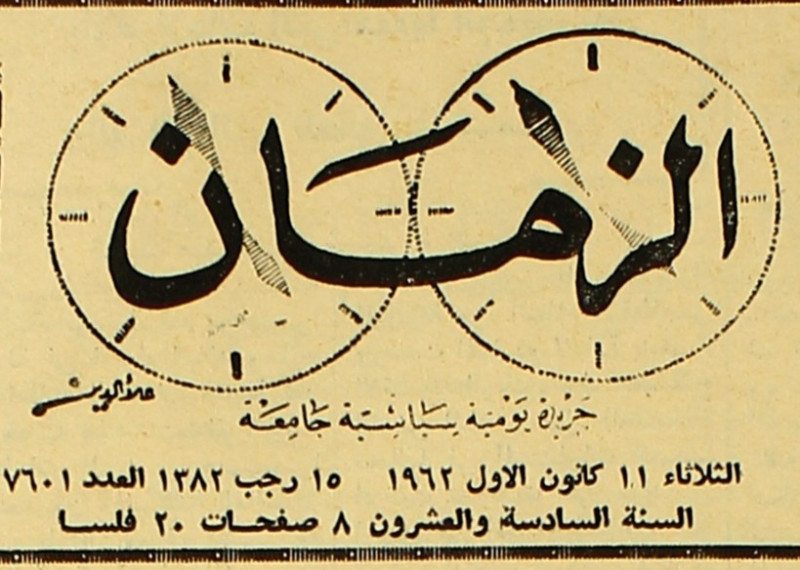 الزمان
علاء الدين
جريدة يومية سياسية جامعة
الثلاثاء ١١ كانون الاول ١٩٦٢ ١٥ رجب ١٣٨٢ العدد ٧٦٠١
السنة السادسة والعشرون ٨ صفحات ٢٠ فلسا